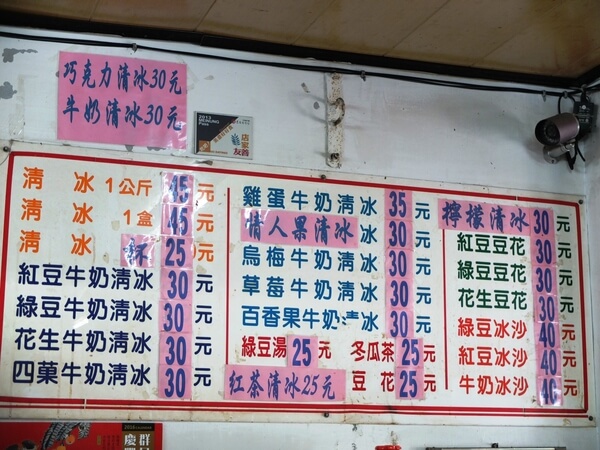 巧克力清冰30元
牛奶清冰30元
2013
店家
友善
清 冰 1公斤 45元
清 冰 1盒 45元
清 冰 杯 25元
紅豆牛奶清冰 30元
綠豆牛奶清冰 30元
花生牛奶清冰 30元
四菓牛奶清冰 30元
雞蛋牛奶清冰 35元
情人果清冰 30元
烏梅牛奶清冰 30元
草莓牛奶清冰 30元
百香果牛奶清冰 30元
綠豆湯 25元
冬瓜茶 25元
紅茶清冰25元
豆 花 25元
檸檬清冰 30元
紅豆豆花 30元
綠豆豆花 30元
花生豆花 30元
綠豆冰沙 40元
紅豆冰沙 40元
牛奶冰沙 40元